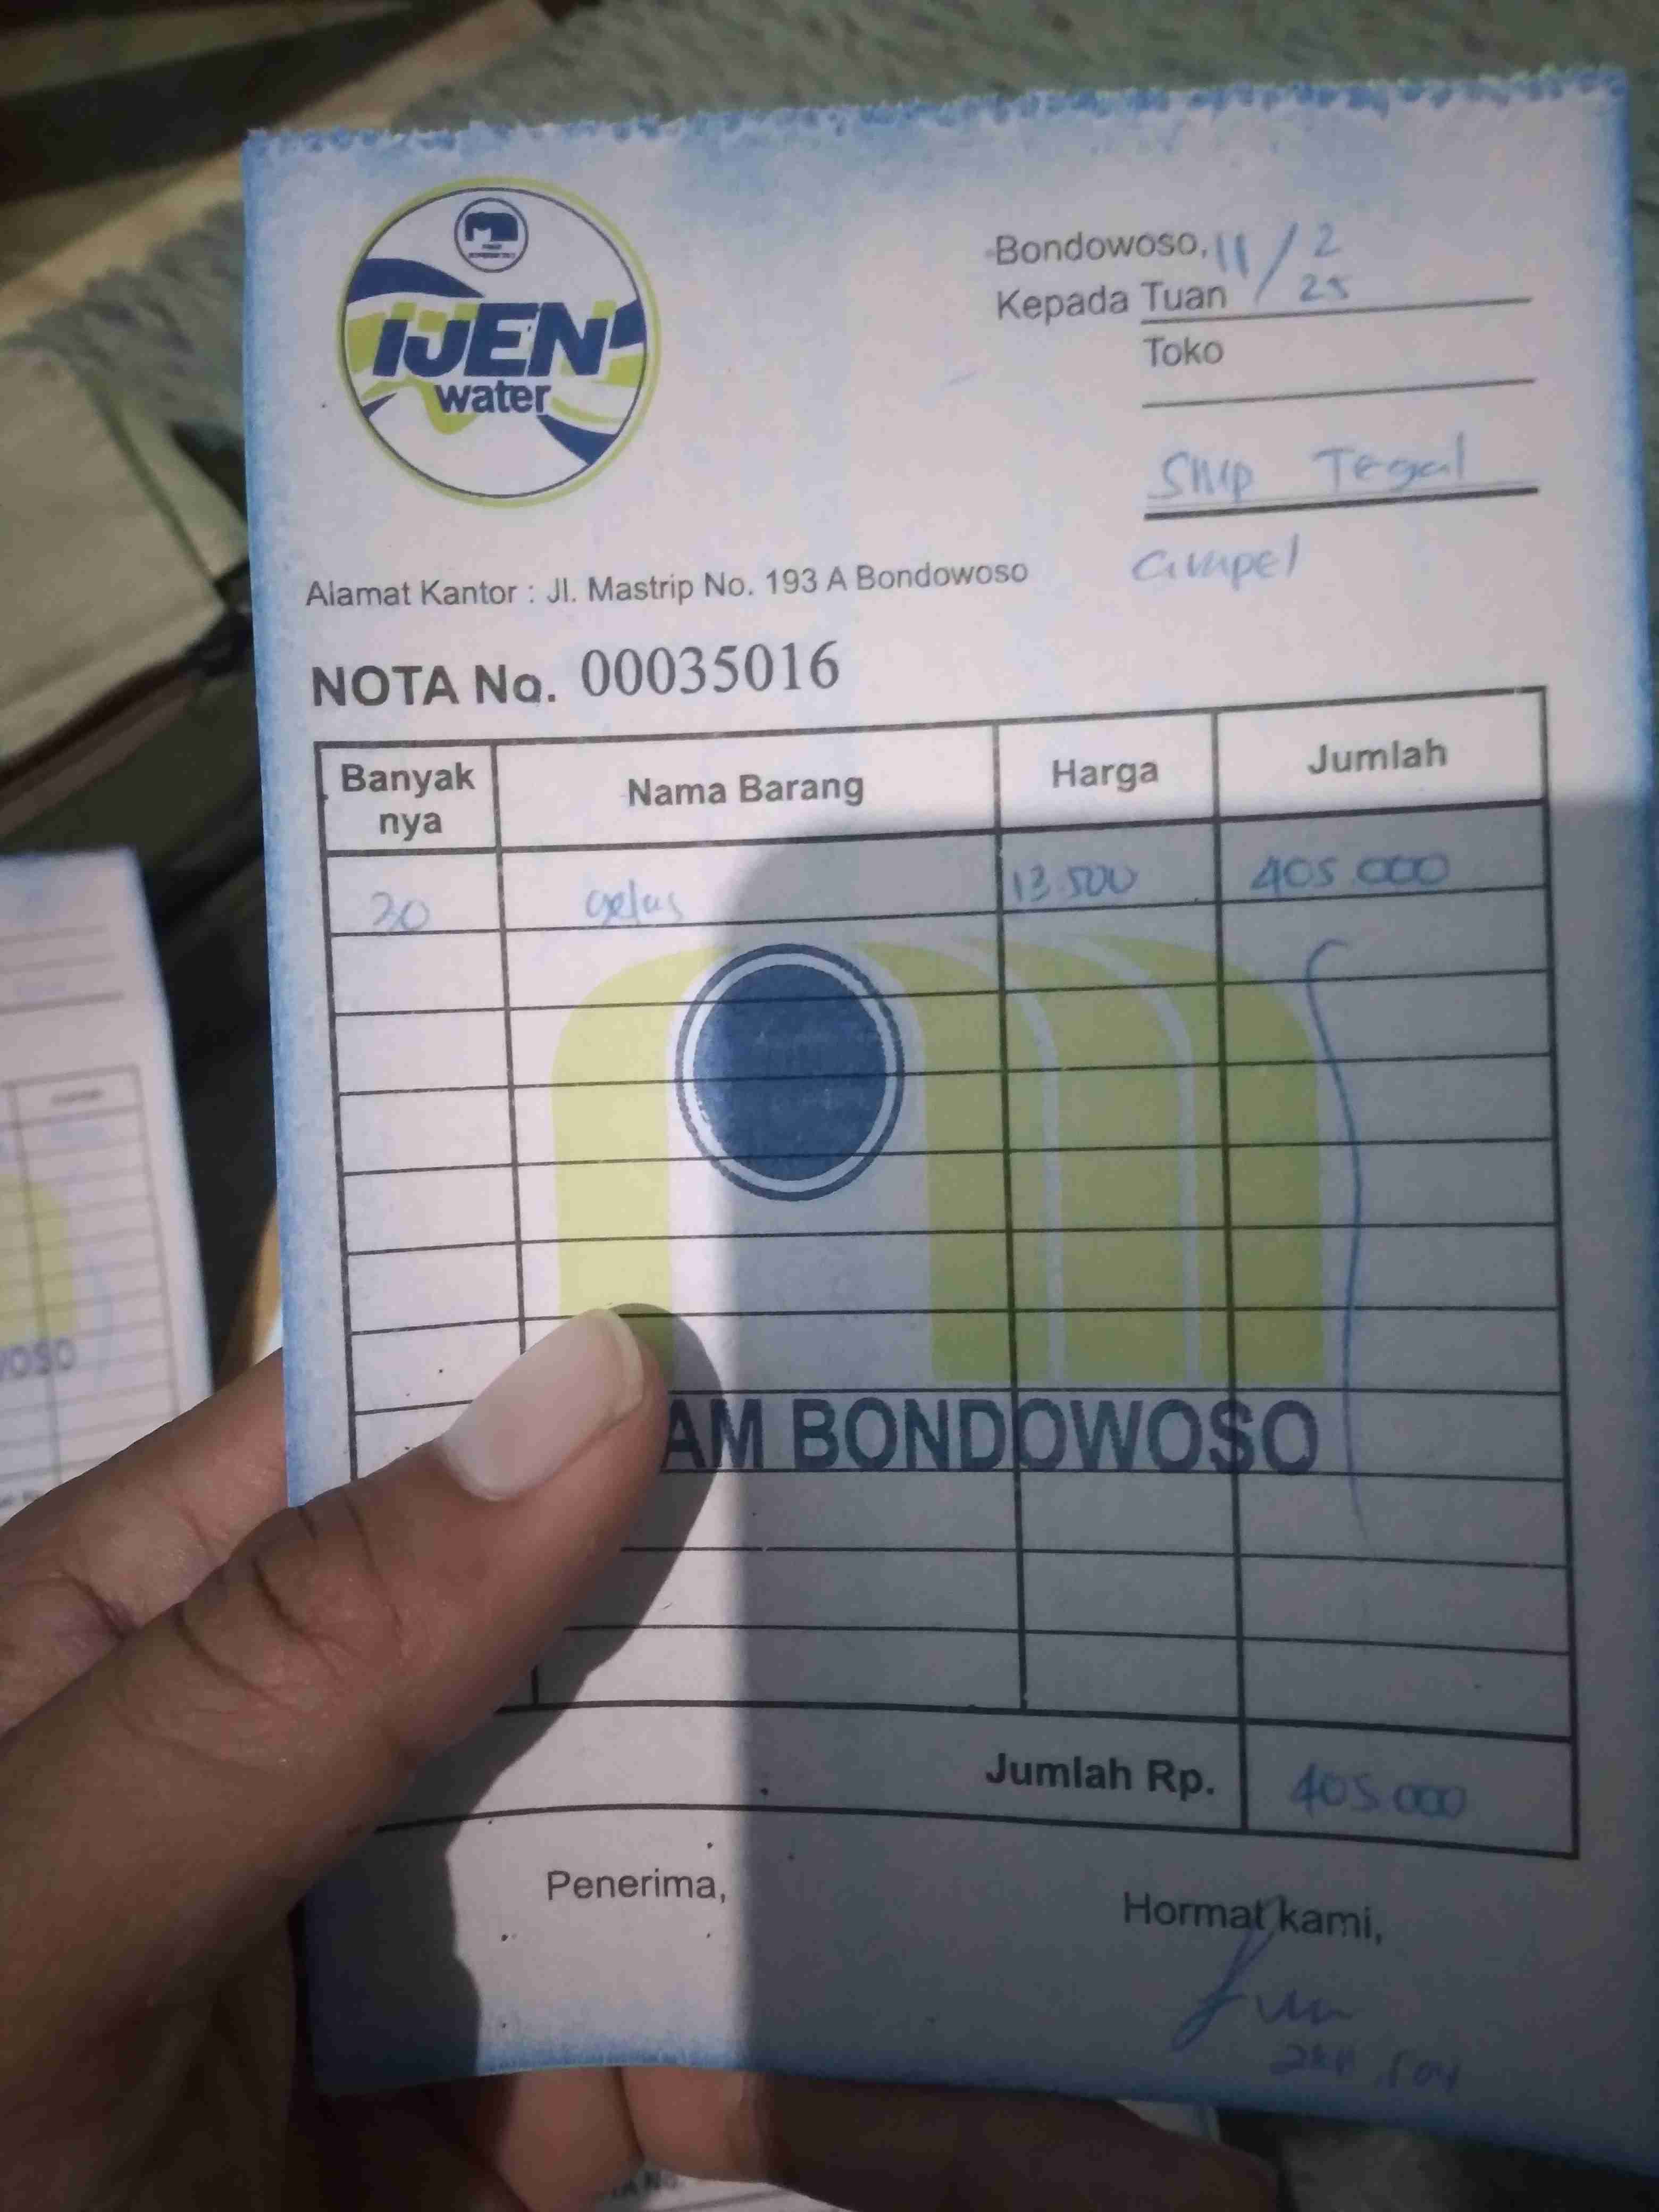 IJEN
water
Bondowoso, 11/2
25
Kepada Tuan
Toko
SMP Tegal
Ampel
Alamat Kantor : Jl. Mastrip No. 193 A Bondowoso
NOTA No. 00035016
Banyak nya Nama Barang Harga Jumlah
30 gelas 13.500 405.000
AM BONDOWOSO
Jumlah Rp. 405.000
Penerima,
Hormat kami,
WOSO